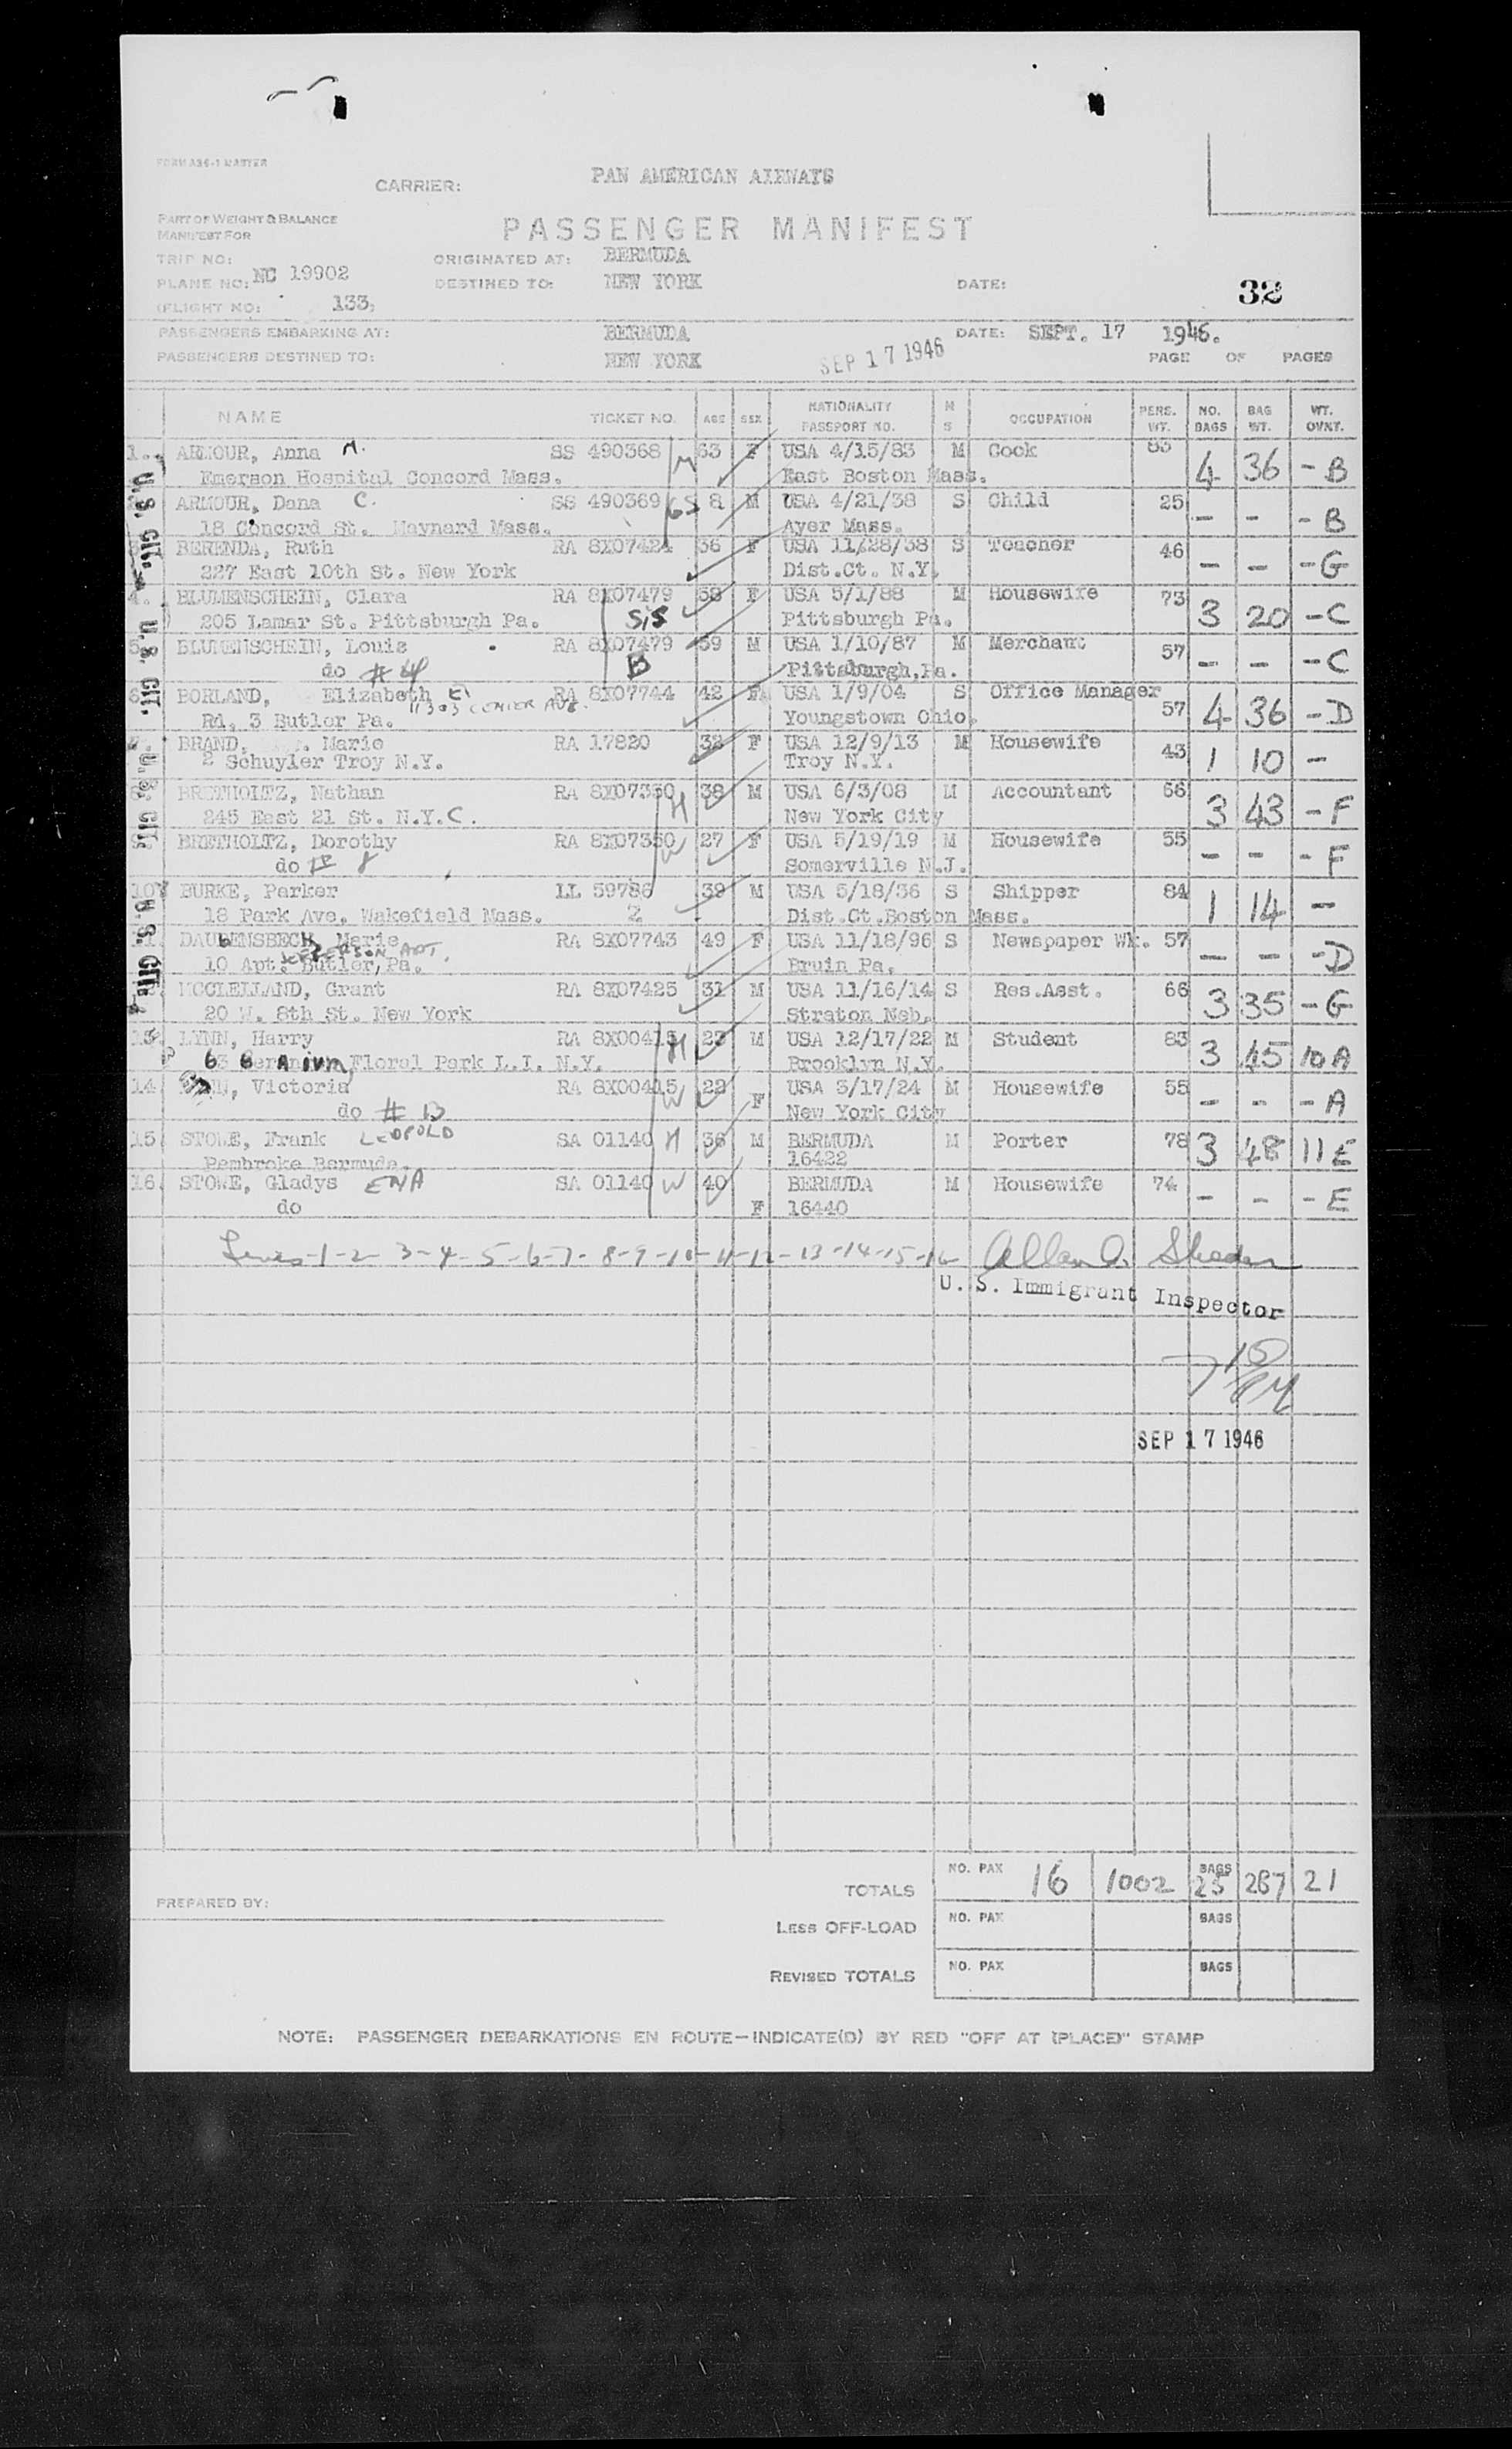 FORM A36-1 MASTER
CARRIER: PAN AMERICAN AIRWAYS
PART OF WEIGHT & BALANCE
MANIFEST FOR
PASSENGER MANIFEST
TRIP NO: ORIGINATED AT: BERMUDA
PLANE NO: NC 19902 DESTINED TO: NEW YORK DATE: 32
(FLIGHT NO: 133)
PASSENGERS EMBARKING AT: BERMUDA DATE: SEPT. 17 1946.
PASSENGERS DESTINED TO: NEW YORK SEP 17 1946 PAGE OF PAGES
NAME TICKET NO. AGE SEX NATIONALITY PASSPORT NO. M S OCCUPATION PERS. WT. NO. BAGS BAG WT. WT. OVNT.
1. ARMOUR, Anna M. SS 490368 M 63 F USA 4/15/83 M Cook 83 4 36 - B
Emerson Hospital Concord Mass. East Boston Mass.
ARMOUR, Dana C. SS 490369 GS 8 M USA 4/21/38 S Child 25 - - - B
18 Concord St. Maynard Mass. Ayer Mass.
BERENDA, Ruth RA 8X07424 36 F USA 11/28/38 S Teacher 46 - - - G
227 East 10th St. New York Dist.Ct. N.Y.
4. BLUMENSCHEIN, Clara RA 8X07479 58 F USA 5/1/88 M Housewife 73 3 20 - C
205 Lamar St. Pittsburgh Pa. S/S Pittsburgh Pa.
5. BLUMENSCHEIN, Louis RA 8X07479 59 M USA 1/10/87 M Merchant 57 - - - C
do # 4 B Pittsburgh, Pa.
6. BORLAND, Elizabeth E. RA 8X07744 42 F USA 1/9/04 S Office Manager 57 4 36 - D
Rd. 3 Butler Pa. Youngstown Ohio.
7. BRAND, Marie RA 17820 32 F USA 12/9/13 M Housewife 43 1 10 -
2 Schuyler Troy N.Y. Troy N.Y.
8. BRETHOLTZ, Nathan RA 8X07350 H 38 M USA 6/3/08 M Accountant 66 3 43 - F
245 East 21 St. N.Y.C. New York City
9. BRETHOLTZ, Dorothy RA 8X07350 W 27 F USA 5/19/19 M Housewife 55 - - - F
do 8 Somerville N.J.
10 BURKE, Parker LL 59786 39 M USA 5/18/36 S Shipper 84 1 14 -
18 Park Ave. Wakefield Mass. 2 Dist.Ct.Boston Mass.
11. DAUBENSBECK, Marie RA 8X07743 49 F USA 11/18/96 S Newspaper Wk. 57 - - - D
10 Apt. JEFFERSON APT. Butler, Pa. Bruin Pa.
MCCLELLAND, Grant RA 8X07425 31 M USA 11/16/14 S Res.Asst. 66 3 35 - G
20 W. 8th St. New York Straton Neb.
13. LYNN, Harry RA 8X00415 H 23 M USA 12/17/22 M Student 83 3 45 10 A
63 Geranium, Floral Park L.I. N.Y. Brooklyn N.Y.
14. LYNN, Victoria RA 8X00415 W 22 F USA 3/17/24 M Housewife 55 - - - A
do # 13 New York City
15. STOWE, Frank LEOPOLD SA 01140 H 36 M BERMUDA M Porter 78 3 48 11 E
Pembroke Bermuda. 16422
16. STOWE, Gladys ENA SA 01140 W 40 F BERMUDA M Housewife 74 - - - E
do 16440
U.S. CIT. U.S. CIT. U.S. CIT. U.S. CIT.
Lines-1-2-3-4-5-6-7-8-9-10-11-12-13-14-15-16
U. S. Immigrant Inspector
SEP 17 1946
TOTALS NO. PAX 16 1002 BAGS 25 287 21
PREPARED BY:
LESS OFF-LOAD NO. PAX BAGS
REVISED TOTALS NO. PAX BAGS
NOTE: PASSENGER DEBARKATIONS EN ROUTE—INDICATE(D) BY RED "OFF AT (PLACE)" STAMP